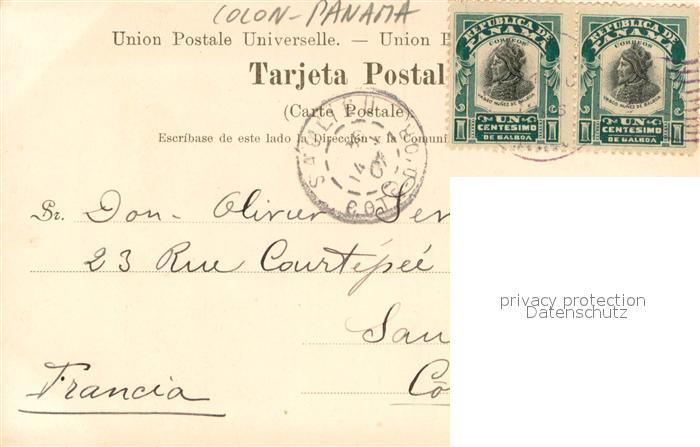 COLON-PANAMA
Union Postale Universelle. — Union P
Tarjeta Postal
(Carte Postale)
Escríbase de este lado la Dirección y la Comuni
REPUBLICA DE PANAMA
CORREOS
VASCO NUÑEZ DE BALBOA
1 UN CENTESIMO 1
DE BALBOA
REPUBLICA DE PANAMA
CORREOS
VASCO NUÑEZ DE BALBOA
1 UN CENTESIMO 1
DE BALBOA
Sr. Don - Olivier Ser
23 Rue Courtépée
Sau
Francia
Cô
privacy protection
Datenschutz